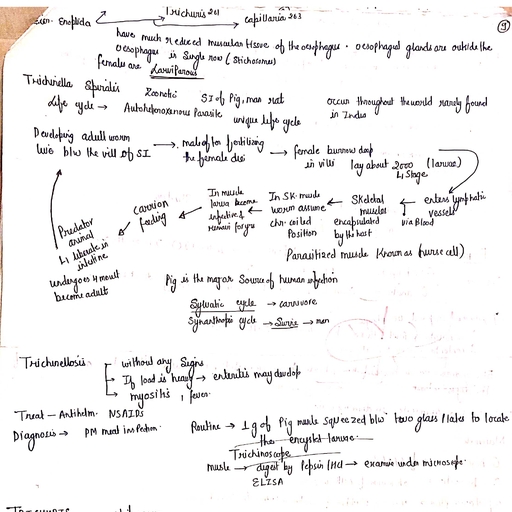 Enoplida
Trichuris 261
capillaria 263
9
have much reduced muscular tissue of the oesophagus. oesophagal glands are outside the
oesophagus in single row (Stichosomes)
female are Larviparous
Trichinella Spiralis
Zoonotic
SI of Pig, man rat
occur throughout the world rarely found
in India
Life cycle → Autoheteroxenous Parasite
unique life cycle
Developing adult worm
live b/w the villi of SI
→ male after fertilizing
the female dei
→ female burrow deep
in villi
lay about 2000 (larvae)
L1 stage
enters lymphatic
vessels
via Blood
Skeletal
muscles
encapsulated
by the host
In SK. muscle
worm assume
chr. coiled
Position
In muscle
larva become
infective &
remain for yrs
carrion
feeding
Predator
animal
L1 liberate in
intestine
undergoes 4 moult
become adult
Parasitized muscle known as (nurse cell)
Pig is the major source of human infection
Sylvatic cycle → carnivore
Synanthropic cycle → Swine → man
Trichinellosis
without any signs
If load is heavy → enteritis may develop
myositis, fever.
Treat - Antihelm. NSAIDS
Diagnosis → PM meat inspection.
Routine → 1g of Pig muscle squeezed b/w two glass plates to locate
the encysted larvae.
Trichinoscope
muscle → digest by Pepsin/HCl → examine under microscope.
ELISA